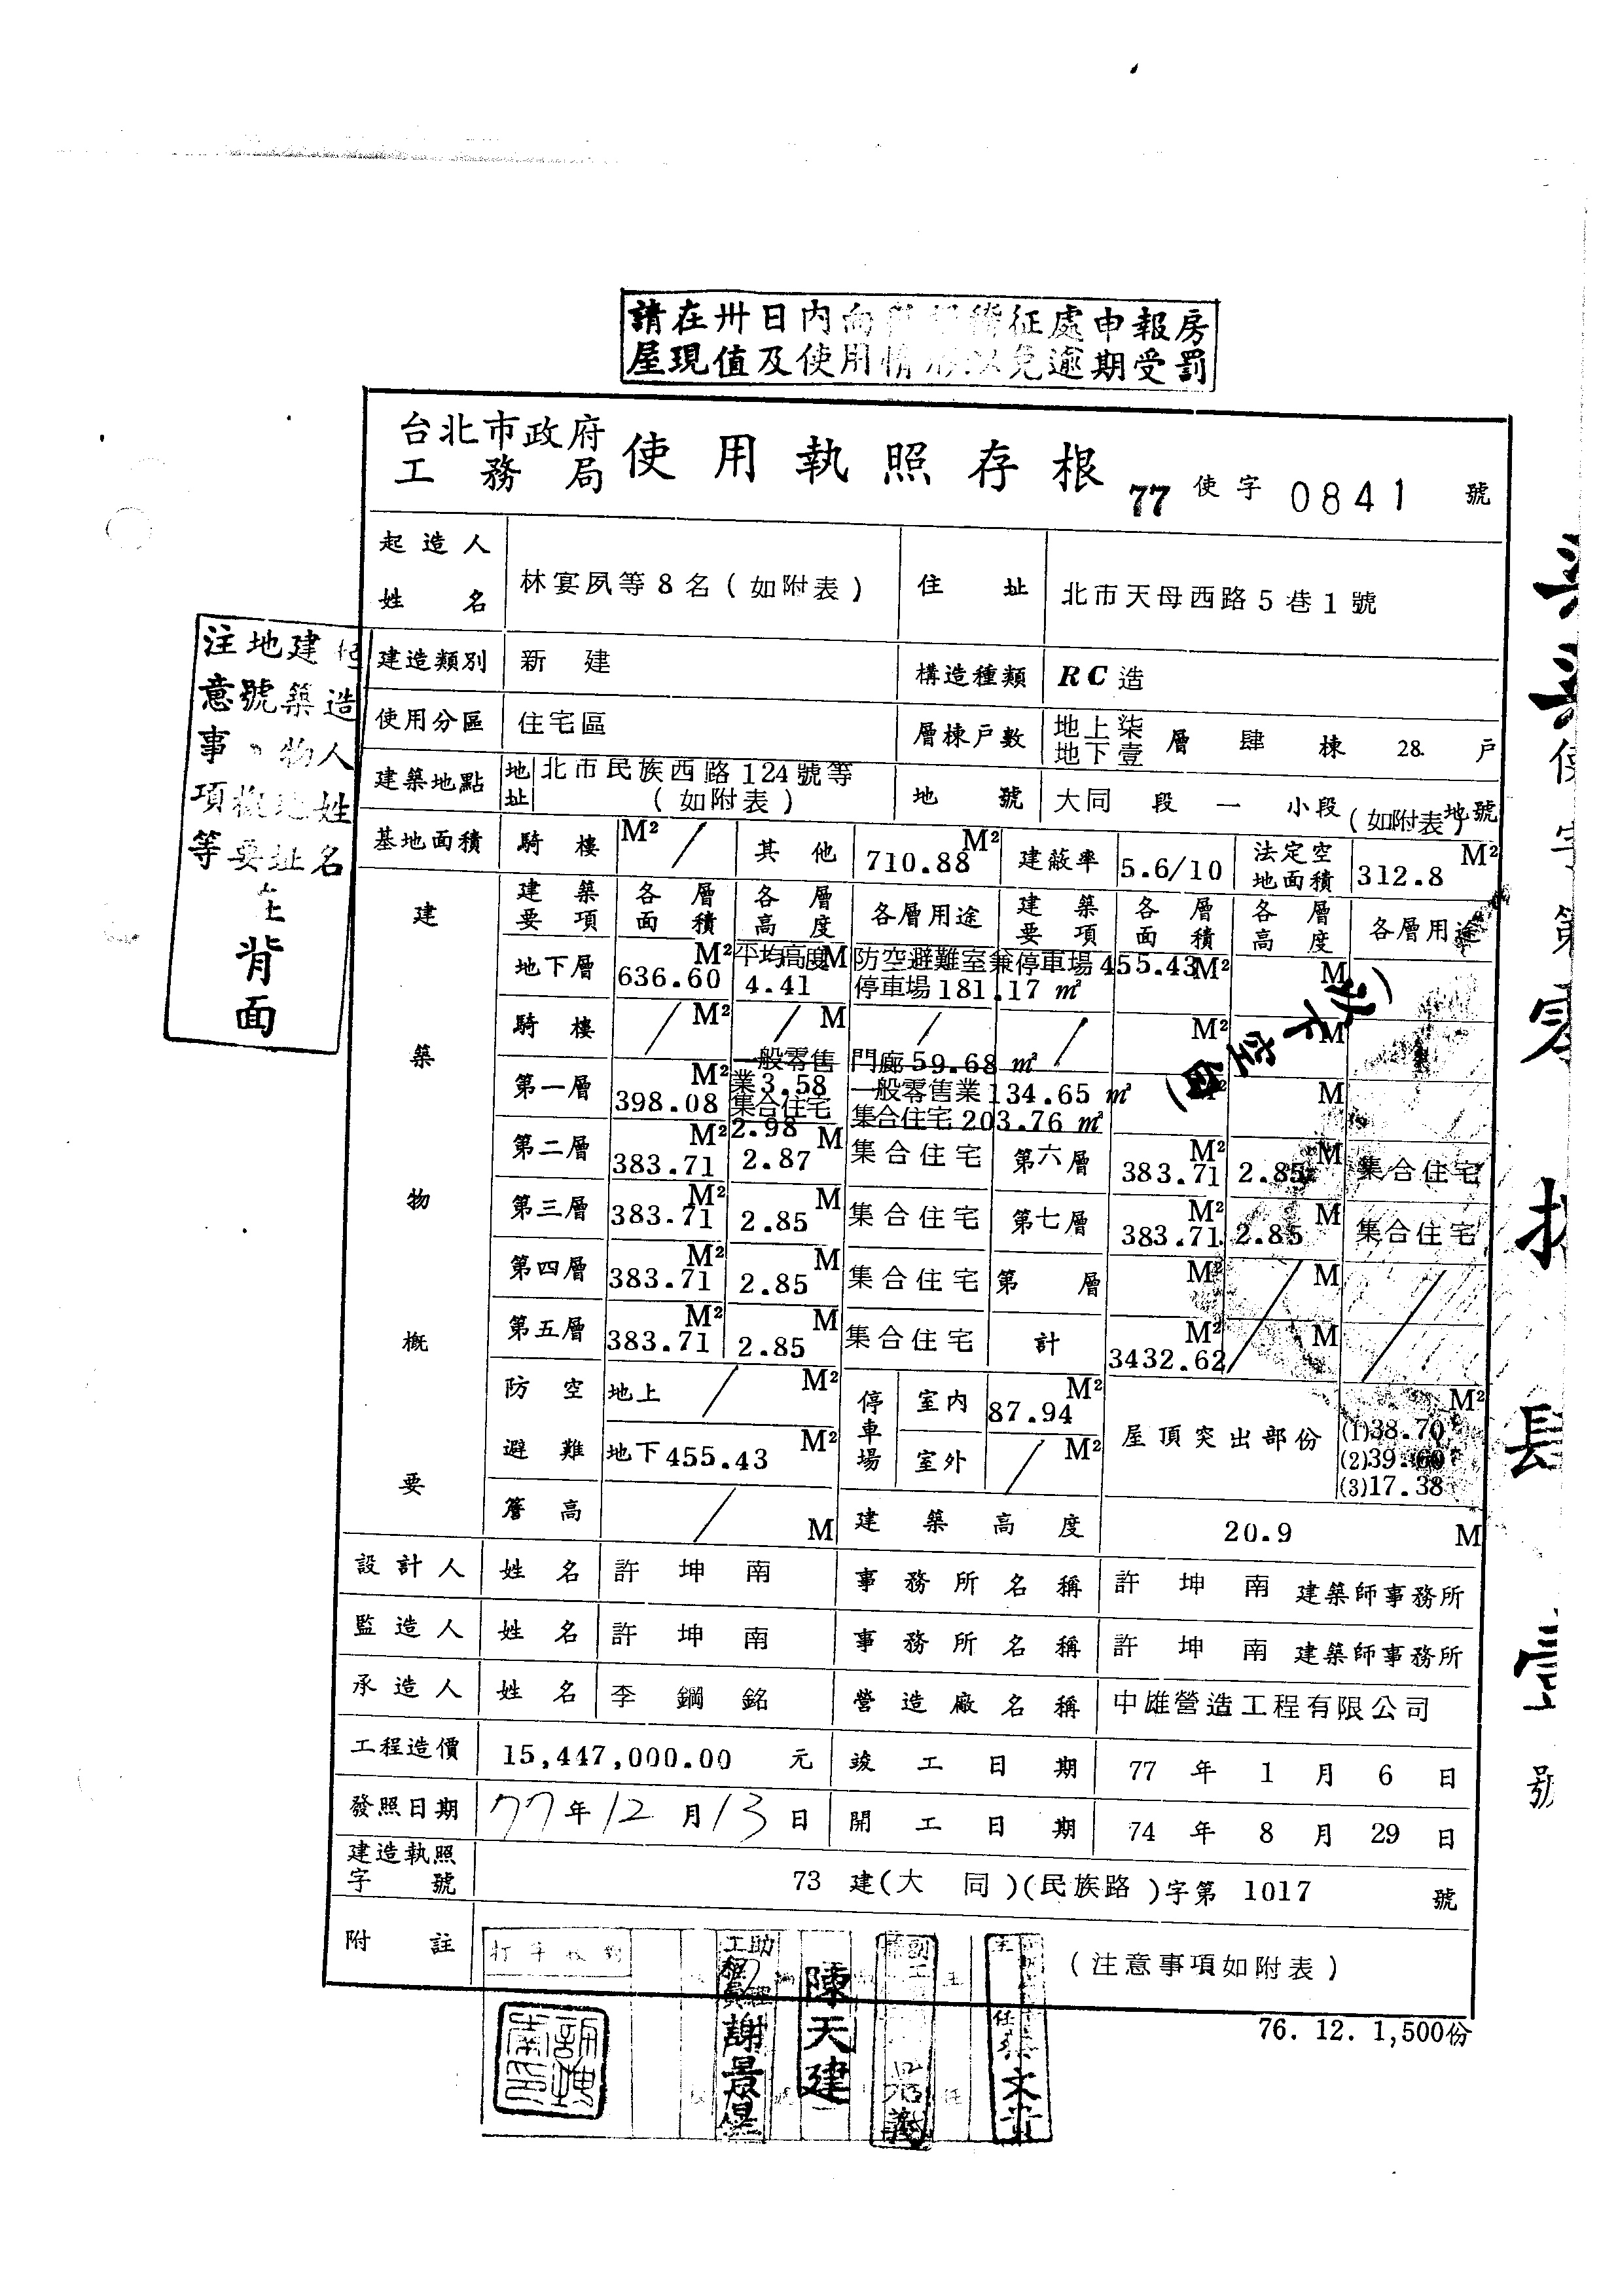 請在卅日內向 征處申報房
屋現值及使用情形以免逾期受罰
台北市政府
工務局
使用執照存根
77 使字 0841 號
起造人姓名 林宴夙等8名(如附表) 住址 北市天母西路5巷1號
建造類別 新建 構造種類 RC造
使用分區 住宅區 層棟戶數 地上柒 地下壹 層 肆 棟 28 戶
建築地點 地址 北市民族西路124號等(如附表) 地號 大同段一小段(如附表)地號
基地面積 騎樓 M² / 其他 710.88 M² 建蔽率 5.6/10 法定空地面積 312.8 M²
建築物概要
建築要項 各層面積 各層高度 各層用途 建築要項 各層面積 各層高度 各層用途
地下層 636.60 M² 平均高度 4.41 M 防空避難室兼停車場455.43 M² M
停車場181.17 m²
騎樓 / M² / M / / M² M
第一層 398.08 M² 一般零售業3.58 集合住宅2.98 門廊59.68 m² M
一般零售業134.65 m²
集合住宅203.76 m²
(以下空白)
第二層 383.71 M² 2.87 M 集合住宅 第六層 383.71 M² 2.85 M 集合住宅
第三層 383.71 M² 2.85 M 集合住宅 第七層 383.71 M² 2.85 M 集合住宅
第四層 383.71 M² 2.85 M 集合住宅 第 層 M² / M /
第五層 383.71 M² 2.85 M 集合住宅 計 3432.62 M² M
防空避難 地上 / M² 停車場 室內 87.94 M² 屋頂突出部份 M²
(1)38.70
地下455.43 M² 室外 / M² (2)39.60
(3)17.38
簷高 / M 建築高度 20.9 M
設計人 姓名 許坤南 事務所名稱 許坤南建築師事務所
監造人 姓名 許坤南 事務所名稱 許坤南建築師事務所
承造人 姓名 李鋼銘 營造廠名稱 中雄營造工程有限公司
工程造價 15,447,000.00 元 竣工日期 77年1月6日
發照日期 77年12月13日 開工日期 74年8月29日
建造執照字號 73建(大同)(民族路)字第1017號
附註 (注意事項如附表)
76. 12. 1,500份
造人姓名
建築物概要
地號、地址
注意事項等
在背面
使字第零捌肆壹號
陳天建